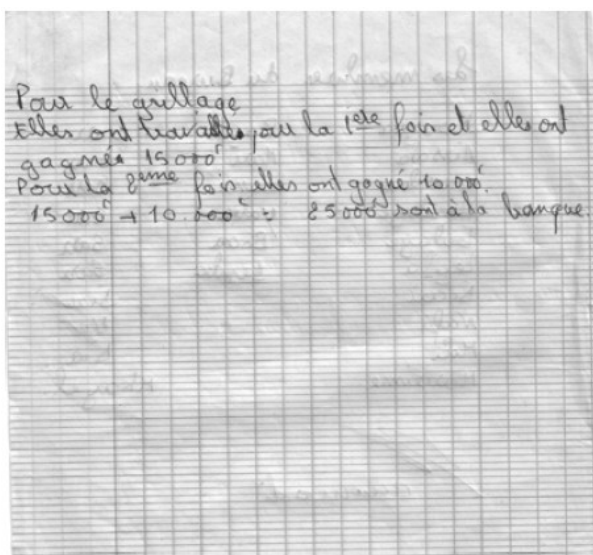 Pour le grillage
Elles ont travaillés pour la 1ere fois et elles ont
gagnés 15000f
Pour la 2eme fois elles ont gagné 10.000f.
15000f + 10.000f = 25000f sont à la banque.